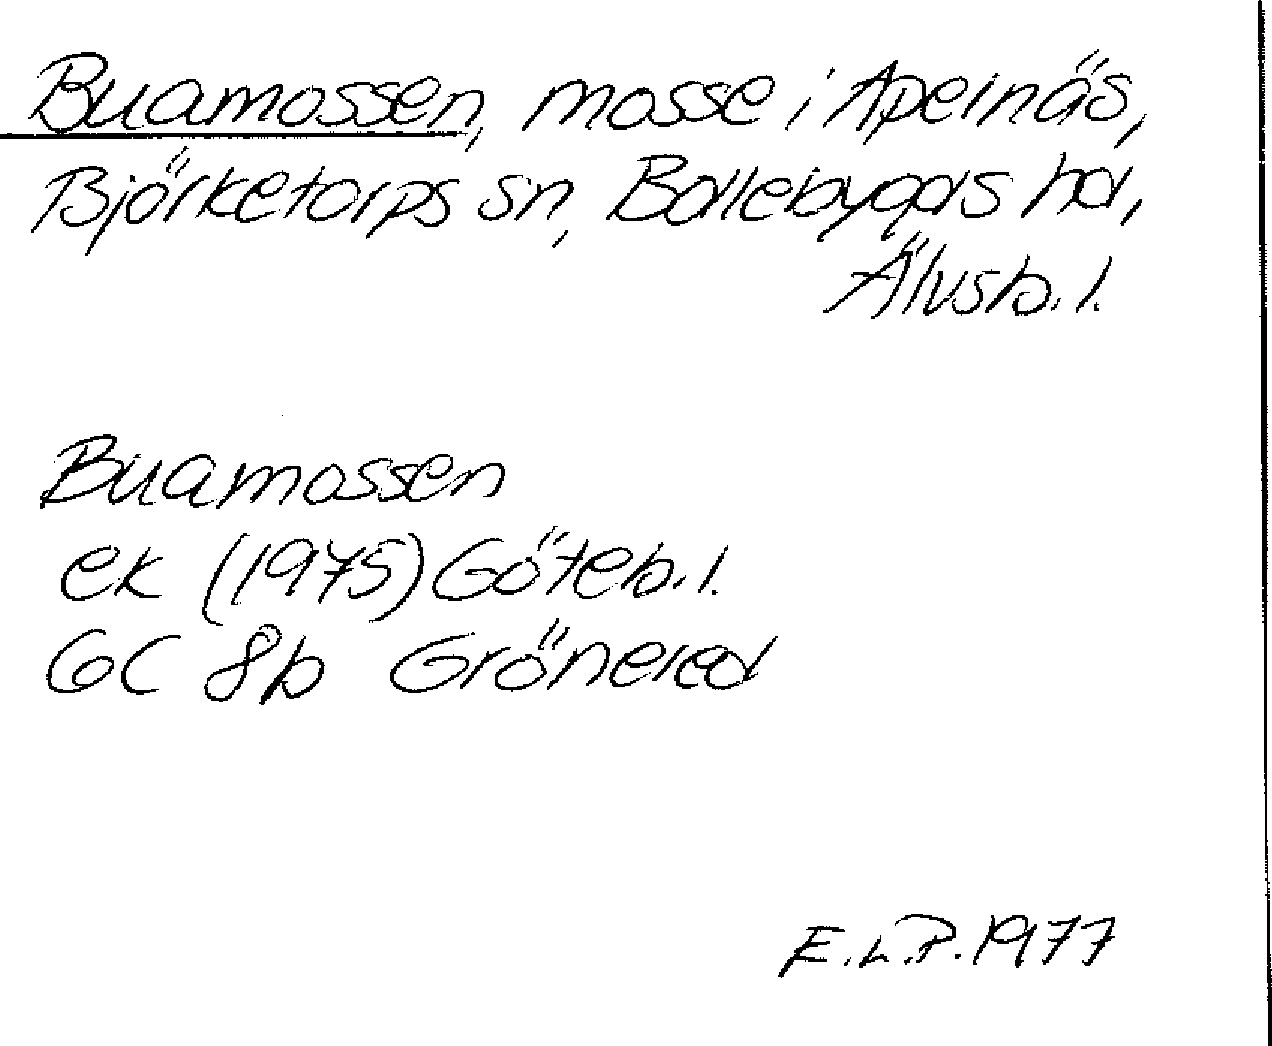 Buamossen, mosse i Apelnäs,
Björketorps sn, Bollebygds hd,
Älvsb. l.
Buamossen
ek (1975) Göteb. l.
6C 8b Grönered
E.L.P. 1977